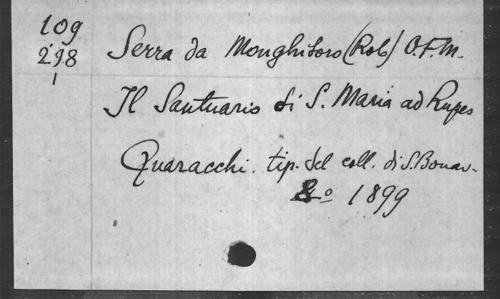 109
298
1
Serra da Monghitoro (Rob) O.F.M.
Il Santuario di S. Maria ad Rupes
Quaracchi. tip. del coll. di S. Bonav.
8.o 1899